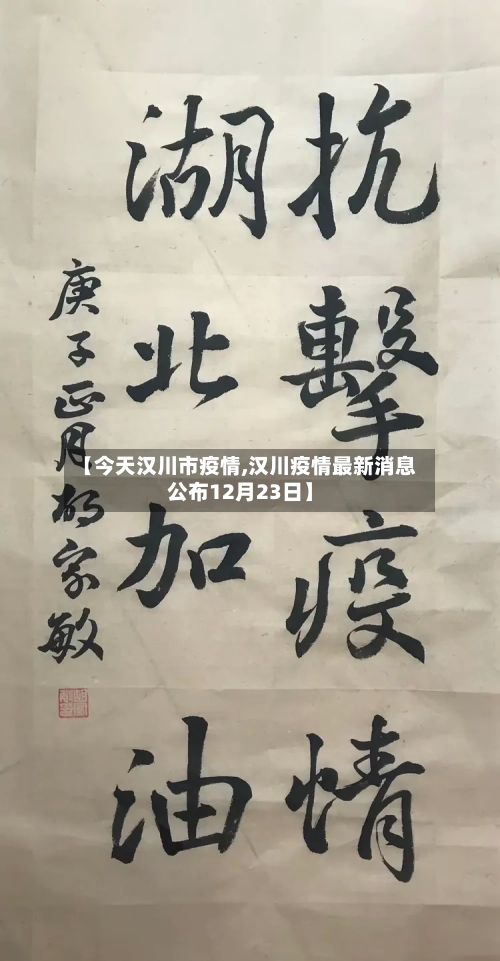 抗擊疫情
湖北加油
庚子正月胡家敏
【今天汉川市疫情,汉川疫情最新消息
公布12月23日】